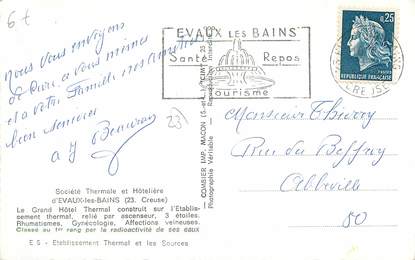 6 t
EVAUX LES BAINS
Santé Repos
Tourisme
0,25
REPUBLIQUE FRANÇAISE
CREUSE
Nous vous envoyons
de Cure à vous mêmes
et à votre Famille nos
bon
a J
23
Monsieur Thierry
Rue du Beffroy
Abbeville
80
COMBIER IMP. MACON
Photographie Véritable
Société Thermale et Hôtelière
d'EVAUX-les-BAINS (23. Creuse)
Le Grand Hôtel Thermal construit sur l'Etablis-
sement thermal, relié par ascenseur, 3 étoiles.
Rhumatismes, Gynécologie, Affections veineuses.
Classé au 1er rang par la radioactivité de ses eaux
E.S - Etablissement Thermal et les Sources